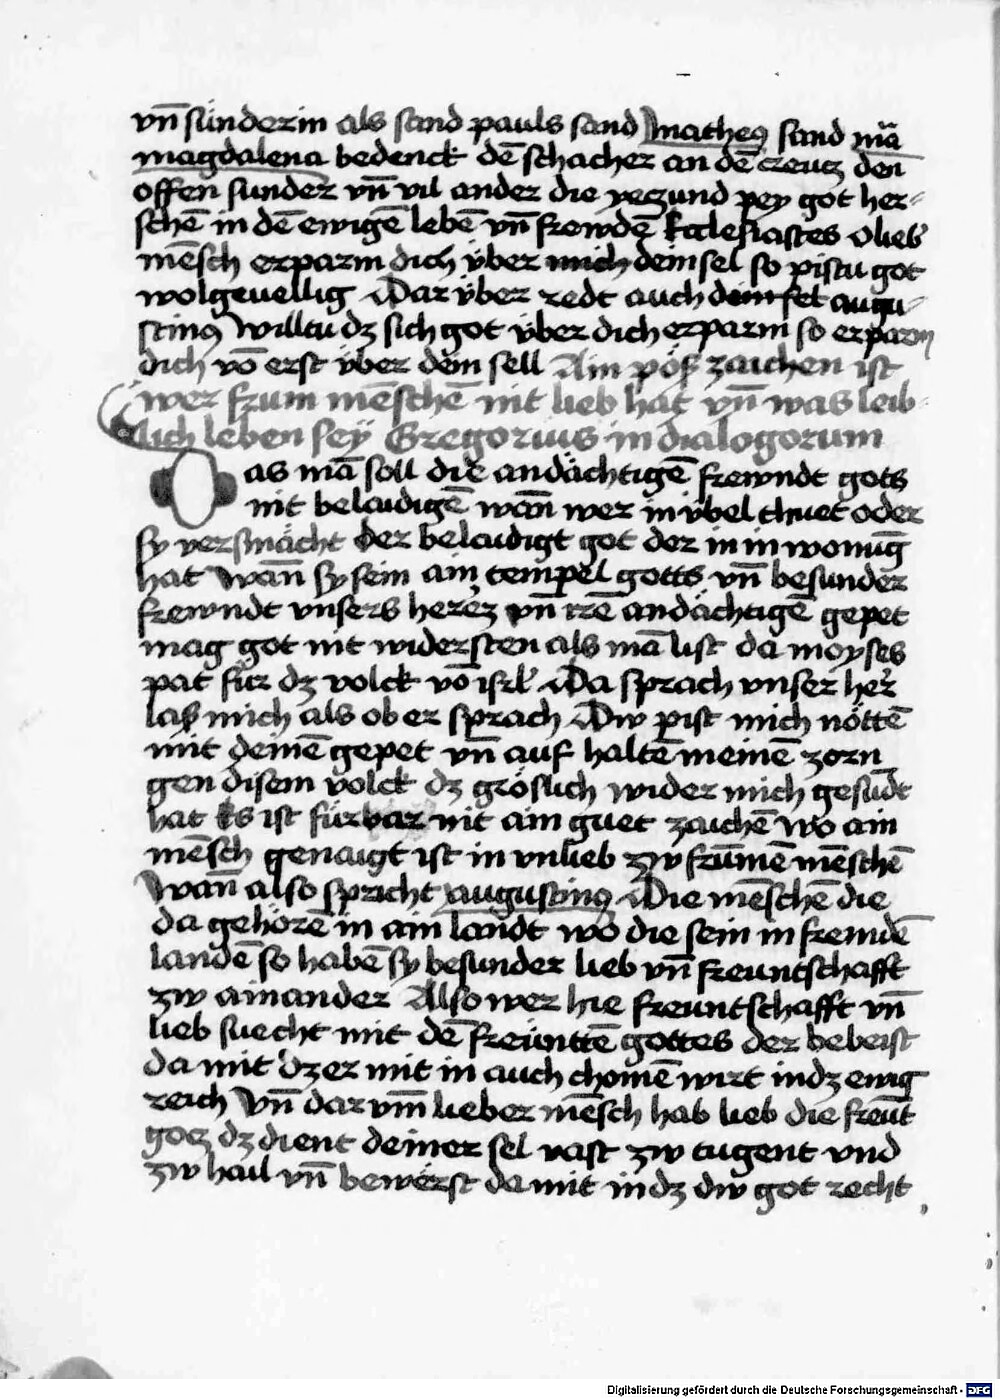 vn̄ sünderin als sand pauls sand matheꝰ sand mā
magdalena bedenck dē schacher an dē creucz den
offen sunder vn̄ vil ander die yeczund pey got her-
schē in dē ewigē lebē vn̄ frewdē Ecclesiastes O lieb̛
mēsch erparm dich v̈ber mich dein sel so pistu got
wolgeuellig Dar v̈ber redt auch dein sel augu-
stinꝰ Willtu dz sich got v̈ber dich erparm so erparm
dich vō erst v̈ber dein sell Ain pöß zaichen ist
wer frum mēschē nit lieb hat vn̄ was leib-
lich leben sey Gregorius in dialogorum
Das mā soll die andächtigē frewndt gots
nit belaidigē wān wer in v̈bel thuet oder
sy versmächt der belaidigt got der in in wonūg
hat Wān sy sein ain tempel gotts vn̄ besunder
frewndt vnsers herrz vn̄ irē andächtigē gepet
mag got nit widersten als mā list da moyses
pat für dz volck vō isrl̛ Da sprach vnser her̛
laß mich als ob er sprach Dw pist mich nöttē
mit deinē gepet vn̄ auf haltē meinē zorn
gen disem volck dz gröslich wider mich gesūdt
hat Es ist fürbar nit ain guet zaichē wo ain
mēsch genaigt ist in vnlieb zw frūmē mēschē
Wān also spricht augustinꝰ Die mēschē die
da gehörē in ain landt wo die sein in fremdē
landē so habē sy besunder lieb vn̄ freuntschafft
zw ainander Also wer hie freuntschafft vn̄
lieb suecht mit dē freünttē gottes der beweist
da mit dz er mit in auch chomē wirt in dz ewig
reich Vn̄ dar vm̄ lieber mēsch hab lieb die freūt
gocz dz dient deiner sel vast zw tugent vnd
zw hail vn̄ bewërst da mit in dz dw got recht
Digitalisierung gefördert durch die Deutsche Forschungsgemeinschaft - DFG